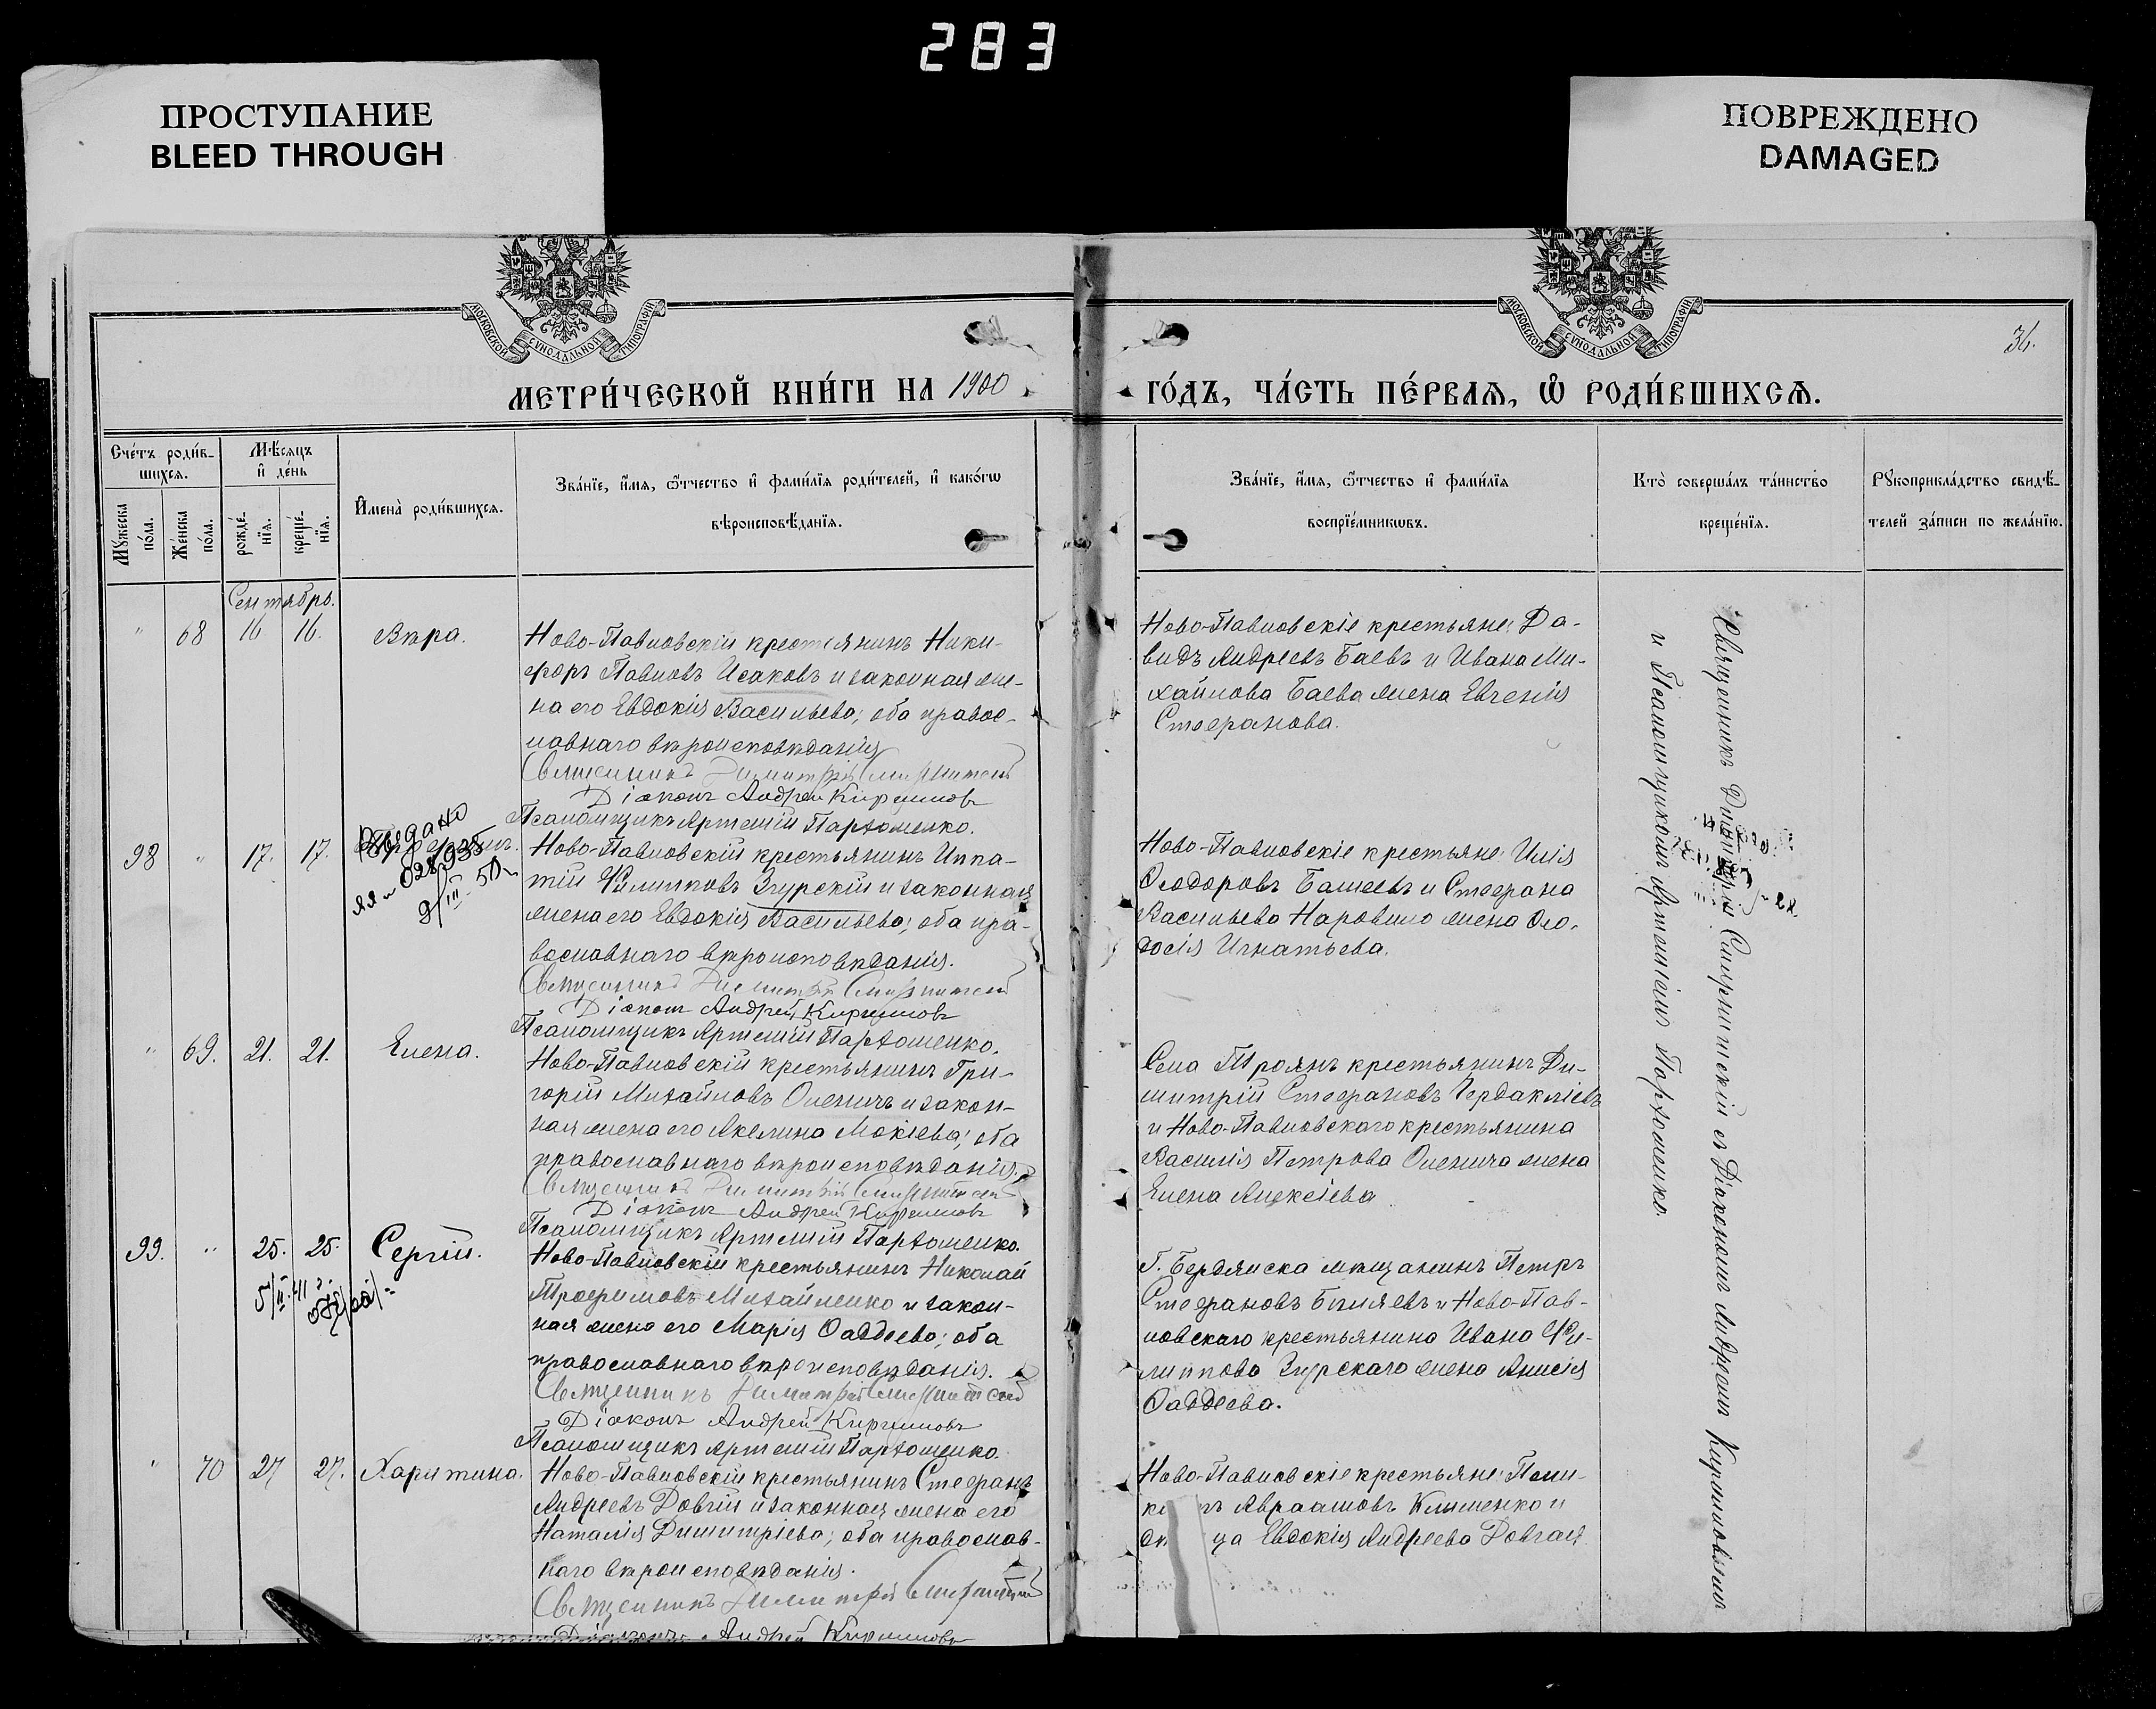 283
ПРОСТУПАНИЕ
BLEED THROUGH
ПОВРЕЖДЕНО
DAMAGED
МОСКОВСКОЙ СѴНОДАЛЬНОЙ ТИПОГРАФІИ
МОСКОВСКОЙ СѴНОДАЛЬНОЙ ТИПОГРАФІИ
34.
МЕТРИ́ЧЕСКОЙ КНИ́ГИ НА 1900
ГО́ДЪ, ЧА́СТЬ ПЕ́РВАЯ, Ѡ҆ РОДИ́ВШИХСЯ.
Сче́тъ роди́в-
шихся.
Мѣ́сяцъ
и҆ де́нь
Мꙋ́жеска
по́ла.
Же́нска
по́ла.
рожде́-
нїя.
креще́-
нїя.
И҆мена̀ роди́вшихся.
Зва́нїе, и҆́мя, ѻ҆́тчество и҆ фами́лїя роди́телей, и҆ како́гѡ
вѣроисповѣ́данїя.
Зва́нїе, и҆́мя, ѻ҆́тчество и҆ фами́лїя
воспрїе́мникѡвъ.
Кто̀ соверша́лъ та́инство
креще́нїя.
Рꙋкоприкла́дство свидѣ́-
телей за́писи по жела́нїю.
Сентябрь.
" 68 16 16. Вѣра.
Ново-Павловскій крестьянинъ Ники-
форъ Павловъ Исаковъ и законная же-
на его Евдокія Васильева; оба правос-
лавнаго вѣроисповѣданія
Священникъ Димитрій
Діаконъ Андрей Кириллов
Псаломщикъ Артемій Пархоменко.
Ново-Павловскіе крестьяне: Да-
видъ Андреевъ Баевъ и Ивана Ми-
хайлова Баева жена Евгенія
Стефанова.
98 " 17. 17.
Ново-Павловскій крестьянинъ Ипа-
тій Филипповъ Згурскій и законная
жена его Евдокія Васильева; оба пра-
вославнаго вѣроисповѣданія.
Священникъ Димитрій
Діаконъ Андрей Кириллов
Псаломщикъ Артемій Пархоменко.
Ново-Павловскіе крестьяне: Илія
Ѳеодоровъ Башеевъ и Стефана
Васильева жена Ѳео-
досія Игнатьева.
" 69. 21. 21. Елена.
Ново-Павловскій крестьянинъ Гри-
горій Михайловъ Оленичъ и закон-
ная жена его Акелина Мокіева; оба
православнаго вѣроисповѣданія.
Священникъ Димитрій
Діаконъ Андрей Кириллов
Псаломщикъ Артемій Пархоменко.
Села Троянъ крестьянинъ Ди-
митрій Стефановъ Чердакліевъ
и Ново-Павловскаго крестьянина
Василія Петрова Оленича жена
Елена Алексіева
99. " 25. 25. Сергій.
Ново-Павловскій крестьянинъ Николай
Трофимовъ Михайленко и закон-
ная жена его Марія Ѳаддеева; оба
православнаго вѣроисповѣданія.
Священникъ Димитрій
Діаконъ Андрей Кириллов
Псаломщикъ Артемій Пархоменко.
Г. Бердянска мѣщанинъ Петръ
Стефановъ и Ново-Пав-
ловскаго крестьянина Ивана Фи-
липпова Згурскаго жена Анисія
Ѳаддеева.
" 70 27 27. Харитина.
Ново-Павловскій крестьянинъ Стефанъ
Андреевъ Довгій и законная жена его
Наталія Димитріева; оба православ-
наго вѣроисповѣданія.
Священникъ Димитрій
Діаконъ Андрей Кириллов
Ново-Павловскіе крестьяне:
Авраамовъ Клименко и
Евдокія Андреева Довгая
Священникъ Димитрій съ Діакономъ Андреемъ Кирилловымъ
и Псаломщикомъ Артеміемъ Пархоменко.